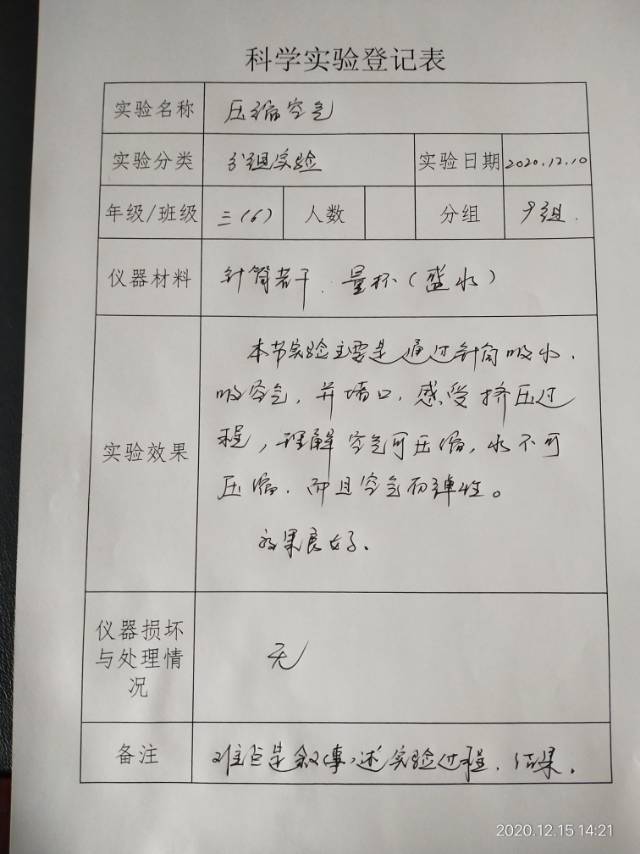 科学实验登记表
实验名称 压缩空气
实验分类 分组实验 实验日期 2020.12.10
年级/班级 三(6) 人数 分组 9组.
仪器材料 针筒若干、量杯(盛水)
实验效果
本节实验主要是通过针筒吸水、
吸空气,并堵口,感受挤压过
程,理解空气可压缩,水不可
压缩,而且空气有弹性。
效果良好。
仪器损坏
与处理情
况
无
备注 难点是叙事,述实验过程、结果。
2020.12.15 14:21